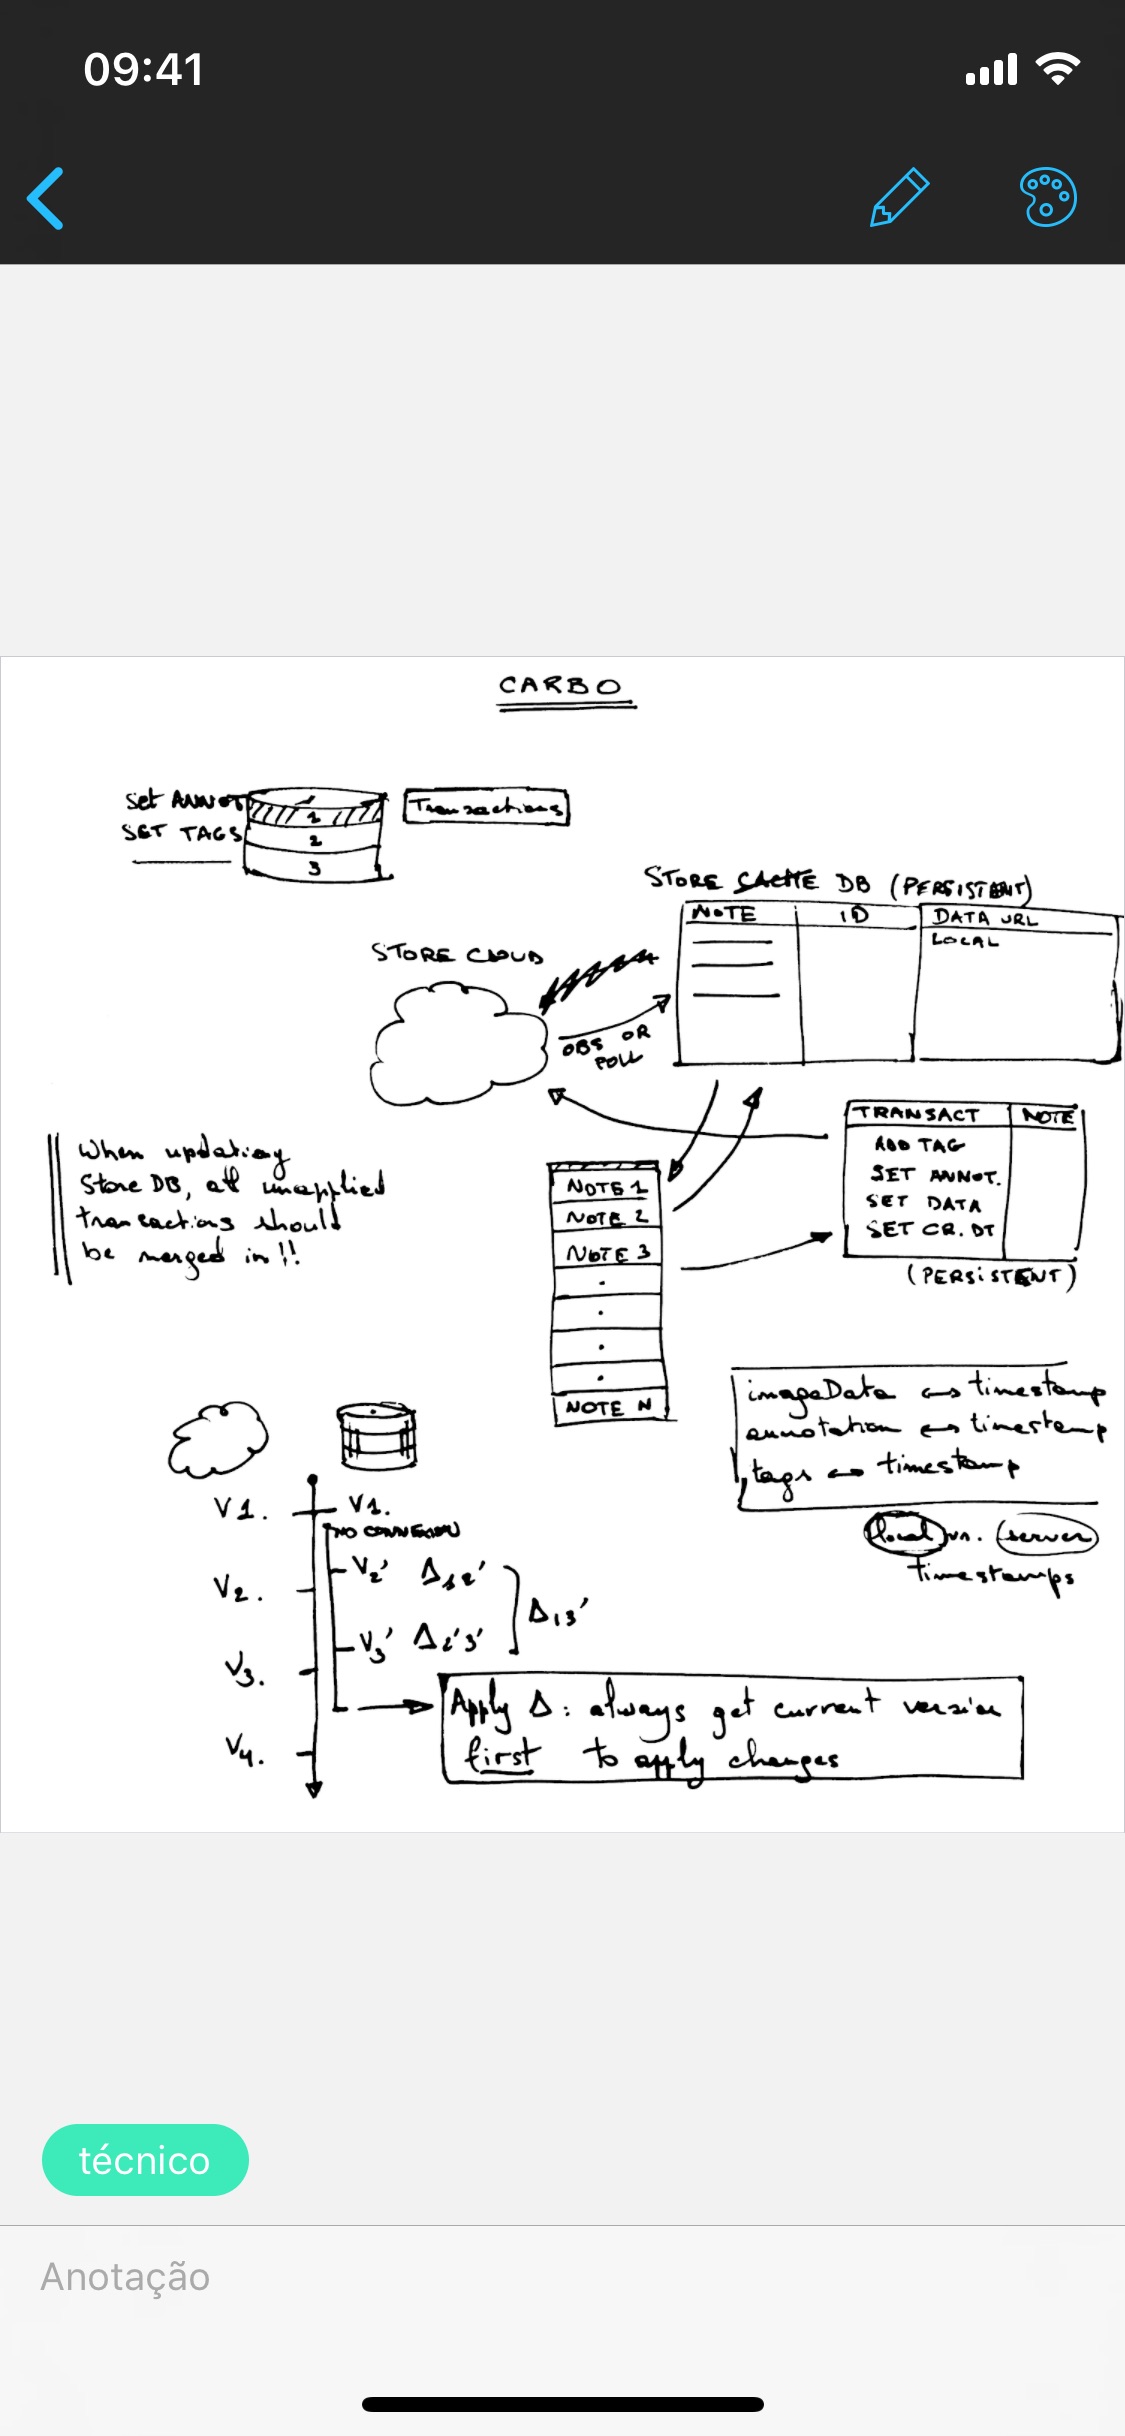 09:41
CARBO
Set ANNOT
SET TAGS
1
2
3
Transactions
STORE CACHE DB (PERSISTENT)
NOTE ID DATA URL
LOCAL
STORE CLOUD
OBS OR
POLL
TRANSACT NOTE
ADD TAG
SET ANNOT.
SET DATA
SET CR. DT
(PERSISTENT)
When updating
Store DB, all unapplied
transactions should
be merged in!!
NOTE 1
NOTE 2
NOTE 3
NOTE N
imageData ↔ timestamp
annotation ↔ timestamp
tags ↔ timestamp
local vs. server
timestamps
V1. V1.
NO CONNEXION
V2. V2' Δ12'
Δ13'
V3. V3' Δ2'3'
V4.
Apply Δ: always get current version
first to apply changes
técnico
Anotação